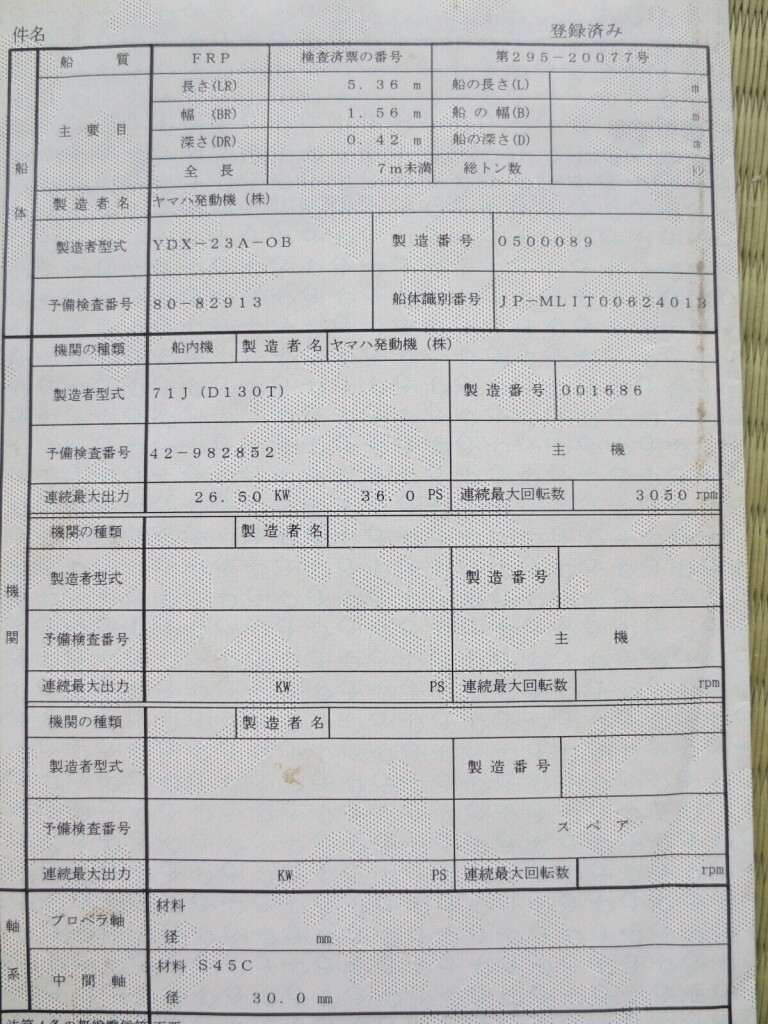 件名 登録済み
船質 FRP 検査済票の番号 第295-20077号
主要目 長さ(LR) 5.36 m 船の長さ(L) m
幅 (BR) 1.56 m 船の幅(B) m
深さ(DR) 0.42 m 船の深さ(D) m
全長 7m未満 総トン数 トン
船体
製造者名 ヤマハ発動機(株)
製造者型式 YDX-23A-OB 製造番号 0500089
予備検査番号 80-82913 船体識別番号
機関の種類 船内機 製造者名 ヤマハ発動機(株)
製造者型式 71J(D130T) 製造番号 001686
予備検査番号 42-982852 主機
連続最大出力 26.50 KW 36.0 PS 連続最大回転数 3050 rpm
機関の種類 製造者名
製造者型式 製造番号
機関
予備検査番号 主機
連続最大出力 KW PS 連続最大回転数 rpm
機関の種類 製造者名
製造者型式 製造番号
予備検査番号 スペア
連続最大出力 KW PS 連続最大回転数 rpm
軸系
プロペラ軸 材料
径 mm
中間軸 材料 S45C
径 30.0 mm